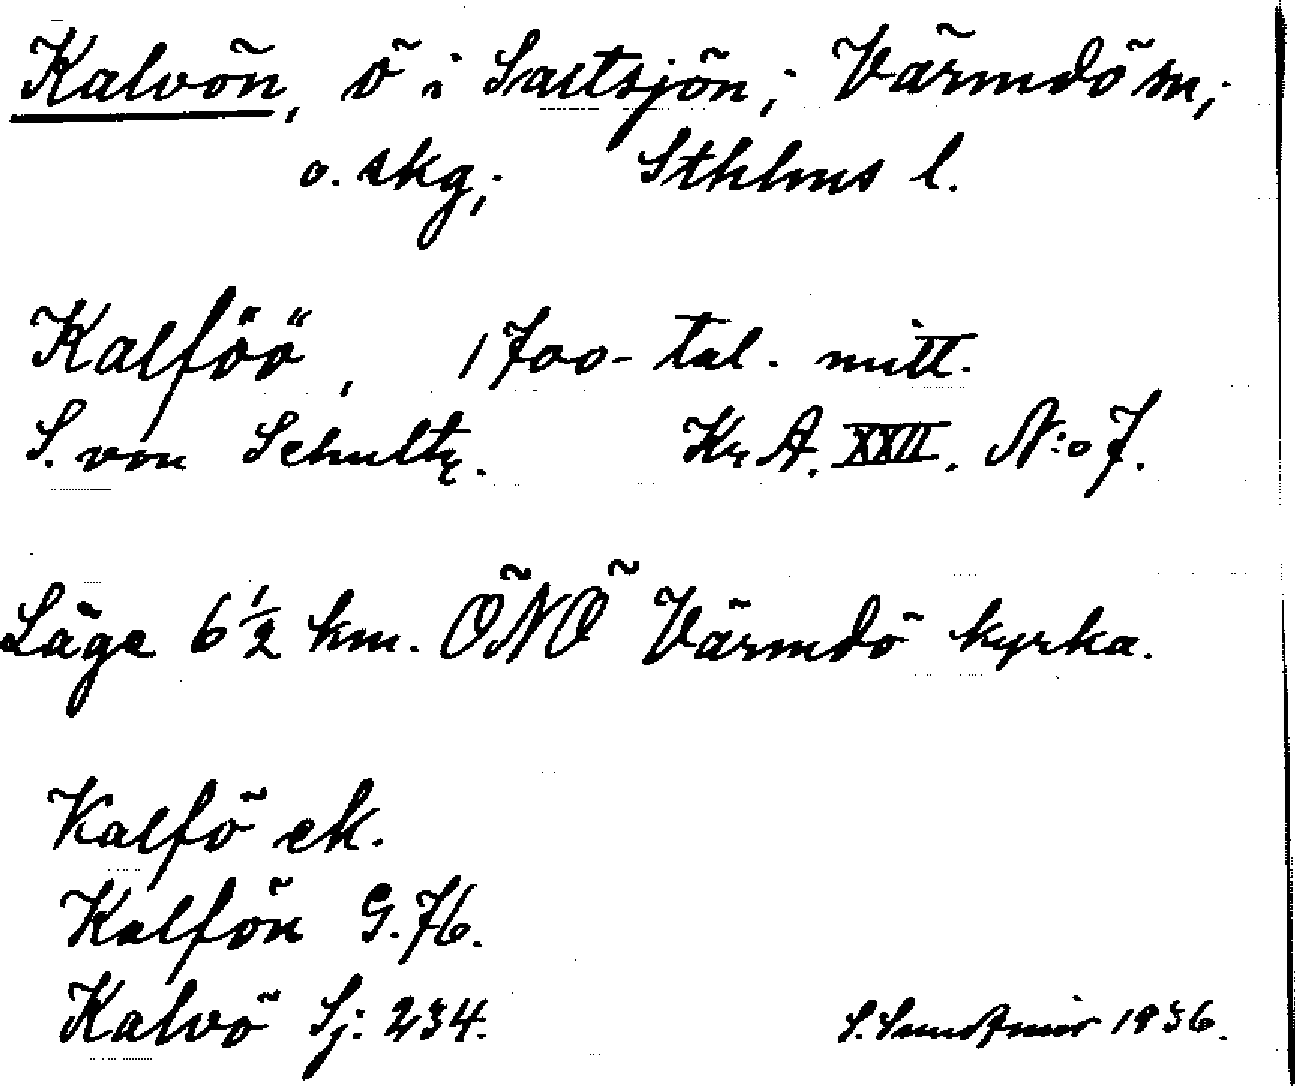 Kalvön, ö i Saltsjön; Värmdö sn;
o. skg; Sthlms l.
Kalföö, 1700-tal. mitt.
S. von Schultz. Kr A. XXII. N:o 7.
Läge 6 1/2 km. ÖNÖ Värmdö kyrka.
Kalfö ek.
Kalfön G. 76.
Kalvö Sj: 234.
S. 1936.